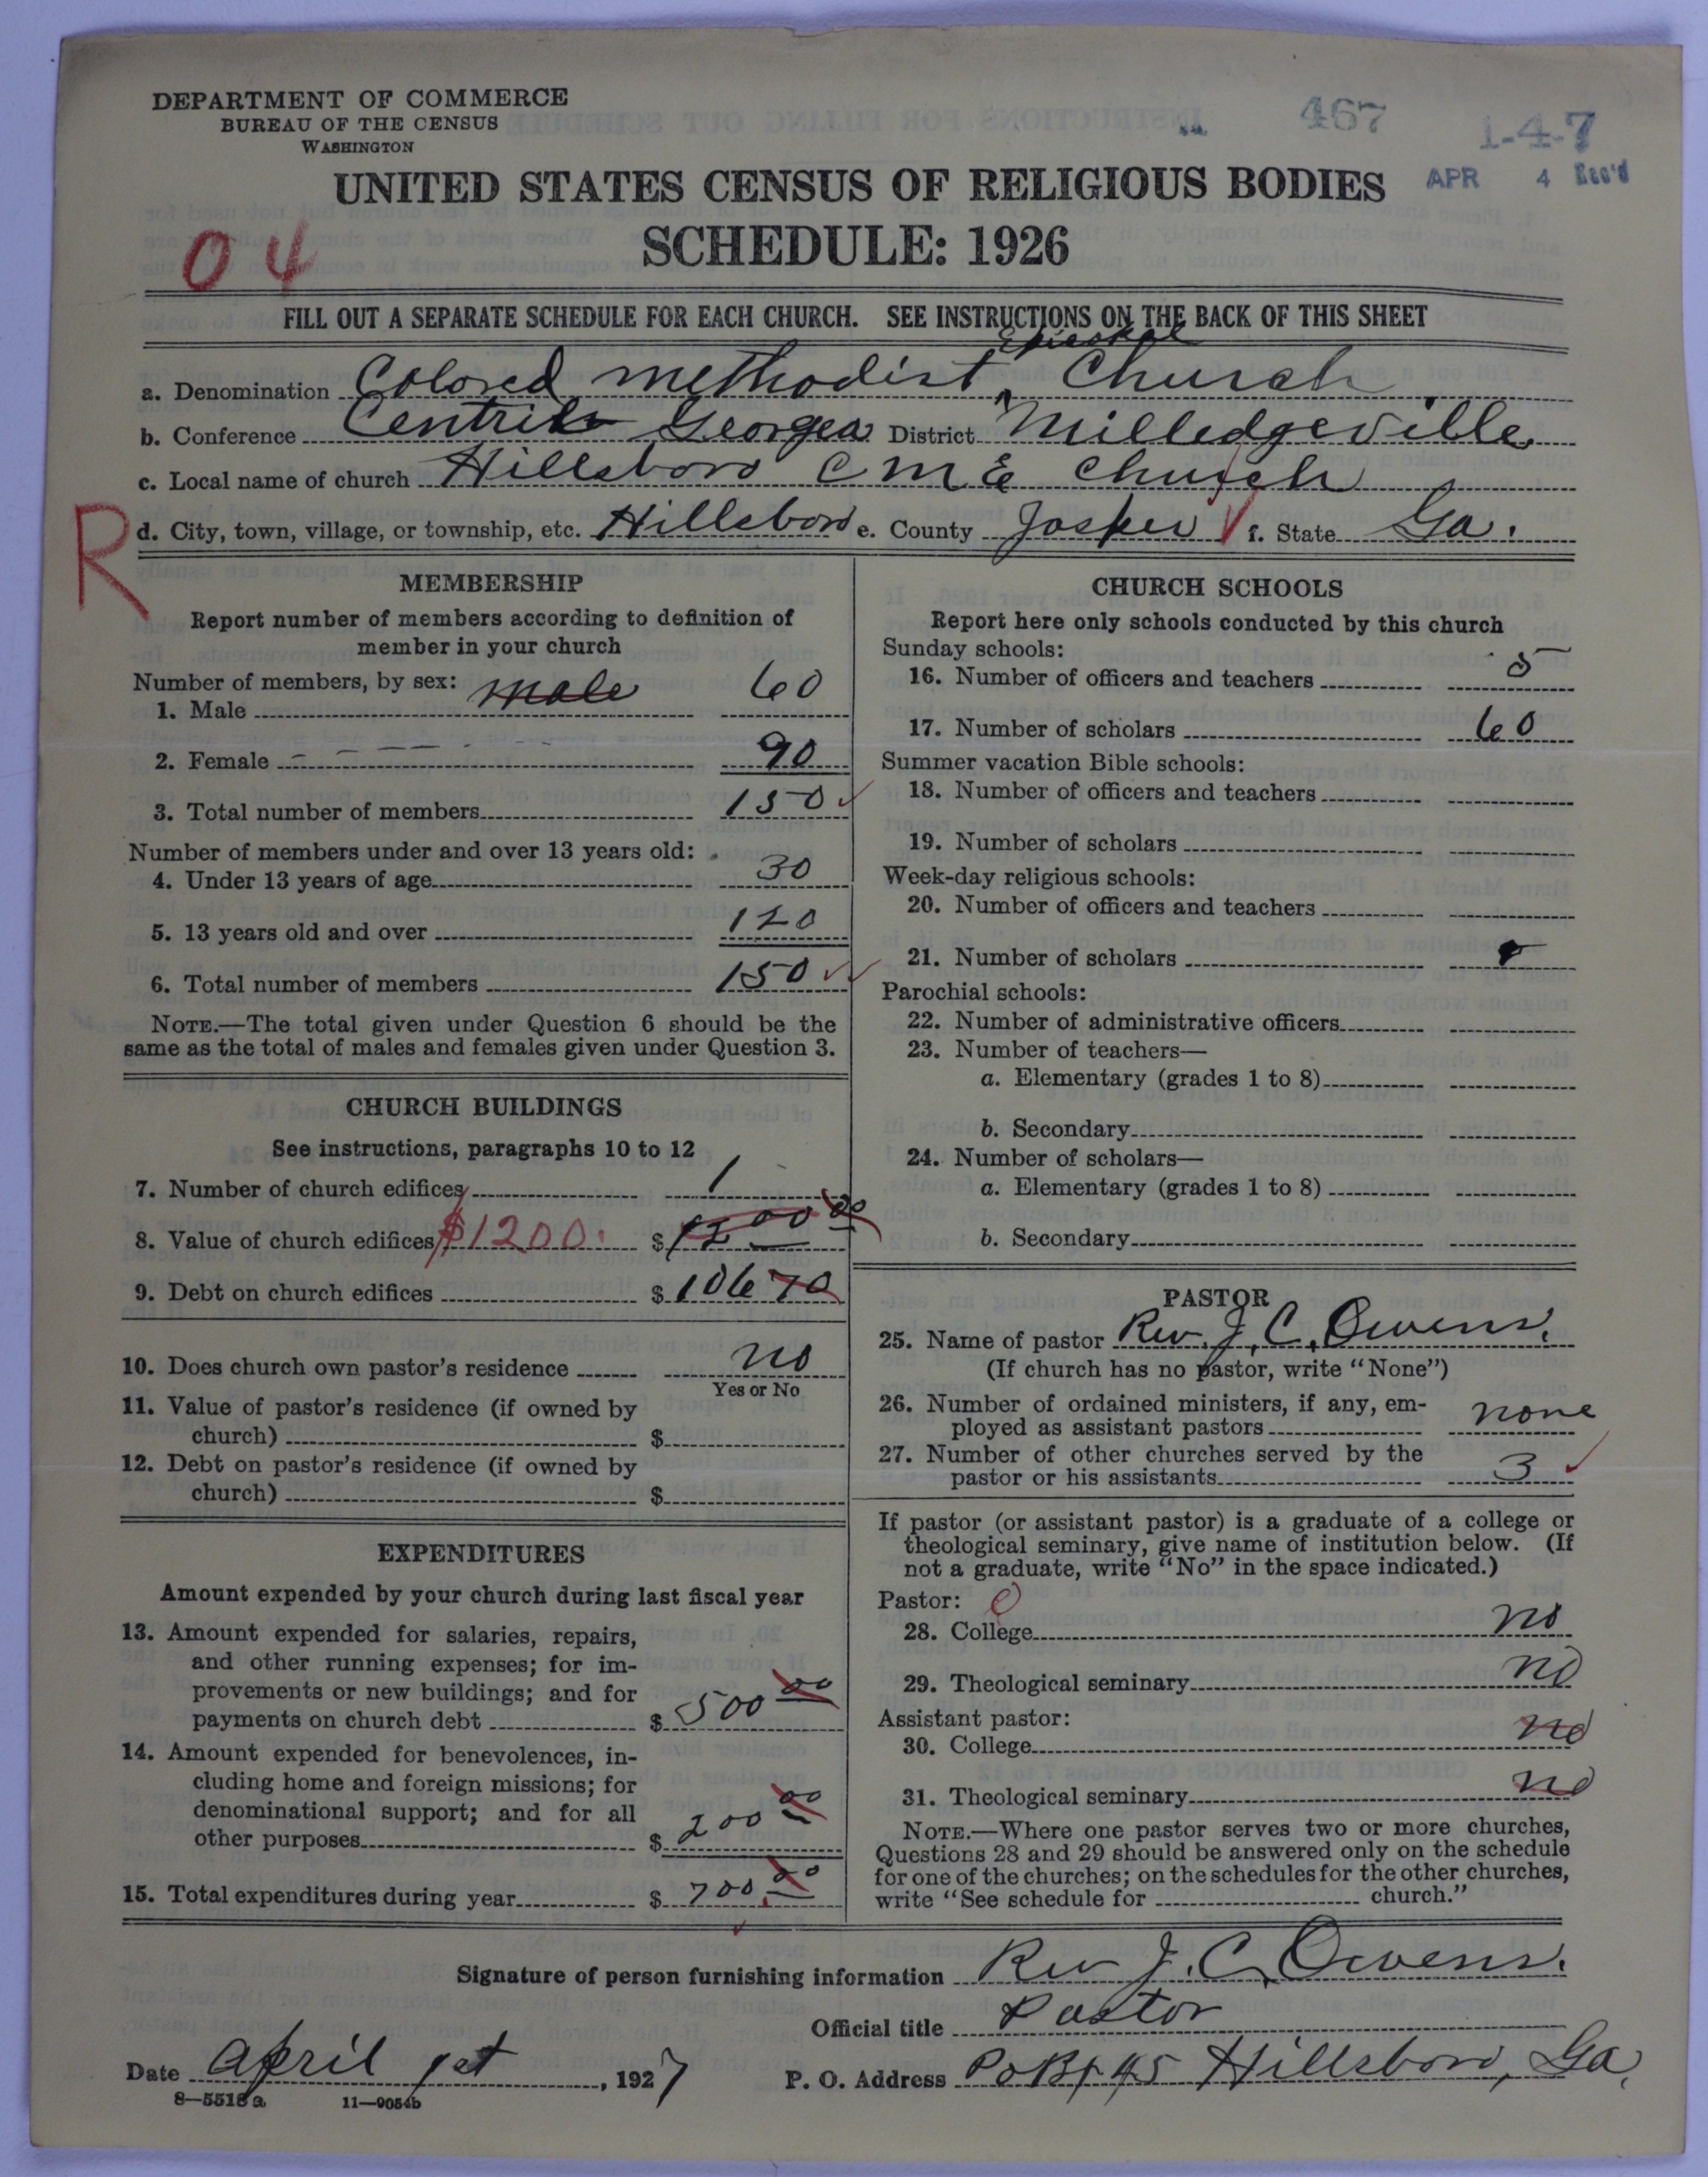 DEPARTMENT OF COMMERCE
BUREAU OF THE CENSUS
WASHINGTON
467
1-4-7
APR 4 Rec'd
UNITED STATES CENSUS OF RELIGIOUS BODIES
SCHEDULE: 1926
04
FILL OUT A SEPARATE SCHEDULE FOR EACH CHURCH. SEE INSTRUCTIONS ON THE BACK OF THIS SHEET
a. Denomination Colored Methodist ^ Church
b. Conference Georgea District Milledgeville
c. Local name of church Hillsboro C M E Church
R
d. City, town, village, or township, etc. Hillsboro e. County Jasper f. State Ga.
MEMBERSHIP
Report number of members according to definition of
member in your church
Number of members, by sex:
1. Male male 60
2. Female 90
3. Total number of members 150
Number of members under and over 13 years old:
4. Under 13 years of age 30
5. 13 years old and over 120
6. Total number of members 150
NOTE.—The total given under Question 6 should be the
same as the total of males and females given under Question 3.
CHURCH BUILDINGS
See instructions, paragraphs 10 to 12
7. Number of church edifices 1
8. Value of church edifices $1200. $1200 00
9. Debt on church edifices $ 106 70
10. Does church own pastor's residence no
Yes or No
11. Value of pastor's residence (if owned by
church) $
12. Debt on pastor's residence (if owned by
church) $
EXPENDITURES
Amount expended by your church during last fiscal year
13. Amount expended for salaries, repairs,
and other running expenses; for im-
provements or new buildings; and for
payments on church debt $ 500 00
14. Amount expended for benevolences, in-
cluding home and foreign missions; for
denominational support; and for all
other purposes $ 200 00
15. Total expenditures during year $ 700.00
CHURCH SCHOOLS
Report here only schools conducted by this church
Sunday schools:
16. Number of officers and teachers 5
17. Number of scholars 60
Summer vacation Bible schools:
18. Number of officers and teachers
19. Number of scholars
Week-day religious schools:
20. Number of officers and teachers
21. Number of scholars
Parochial schools:
22. Number of administrative officers
23. Number of teachers—
a. Elementary (grades 1 to 8)
b. Secondary
24. Number of scholars—
a. Elementary (grades 1 to 8)
b. Secondary
PASTOR
25. Name of pastor Rev. J. C. Owens.
(If church has no pastor, write "None")
26. Number of ordained ministers, if any, em-
ployed as assistant pastors none
27. Number of other churches served by the
pastor or his assistants 3
If pastor (or assistant pastor) is a graduate of a college or
theological seminary, give name of institution below. (If
not a graduate, write "No" in the space indicated.)
Pastor:
28. College no
29. Theological seminary no
Assistant pastor:
30. College no
31. Theological seminary no
NOTE.—Where one pastor serves two or more churches,
Questions 28 and 29 should be answered only on the schedule
for one of the churches; on the schedules for the other churches,
write "See schedule for church."
Signature of person furnishing information Rev J. C. Owens.
Official title Pastor
Date April 1st, 1927 P. O. Address 45 Hillsboro, Ga.
8—5518a 11—9054b